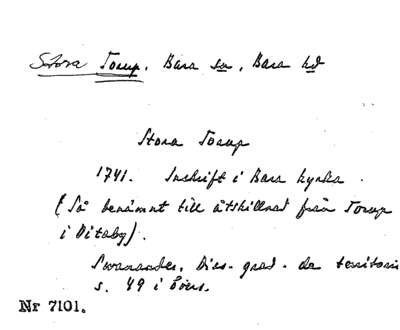 Stora Torup. Bara sn, Bara hd
Stora Torup
1741. Inskrift i Bara kyrka.
(Så benämnt till åtskillnad från Torup
i Vitaby).
Swanander. Diss. grad. de territorio
s. 49 i övers.
Nr 7101.